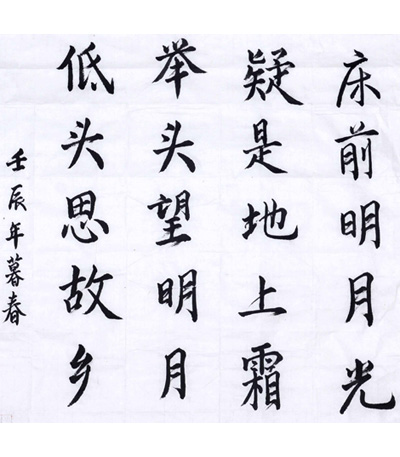 床前明月光
疑是地上霜
举头望明月
低头思故乡
壬辰年暮春